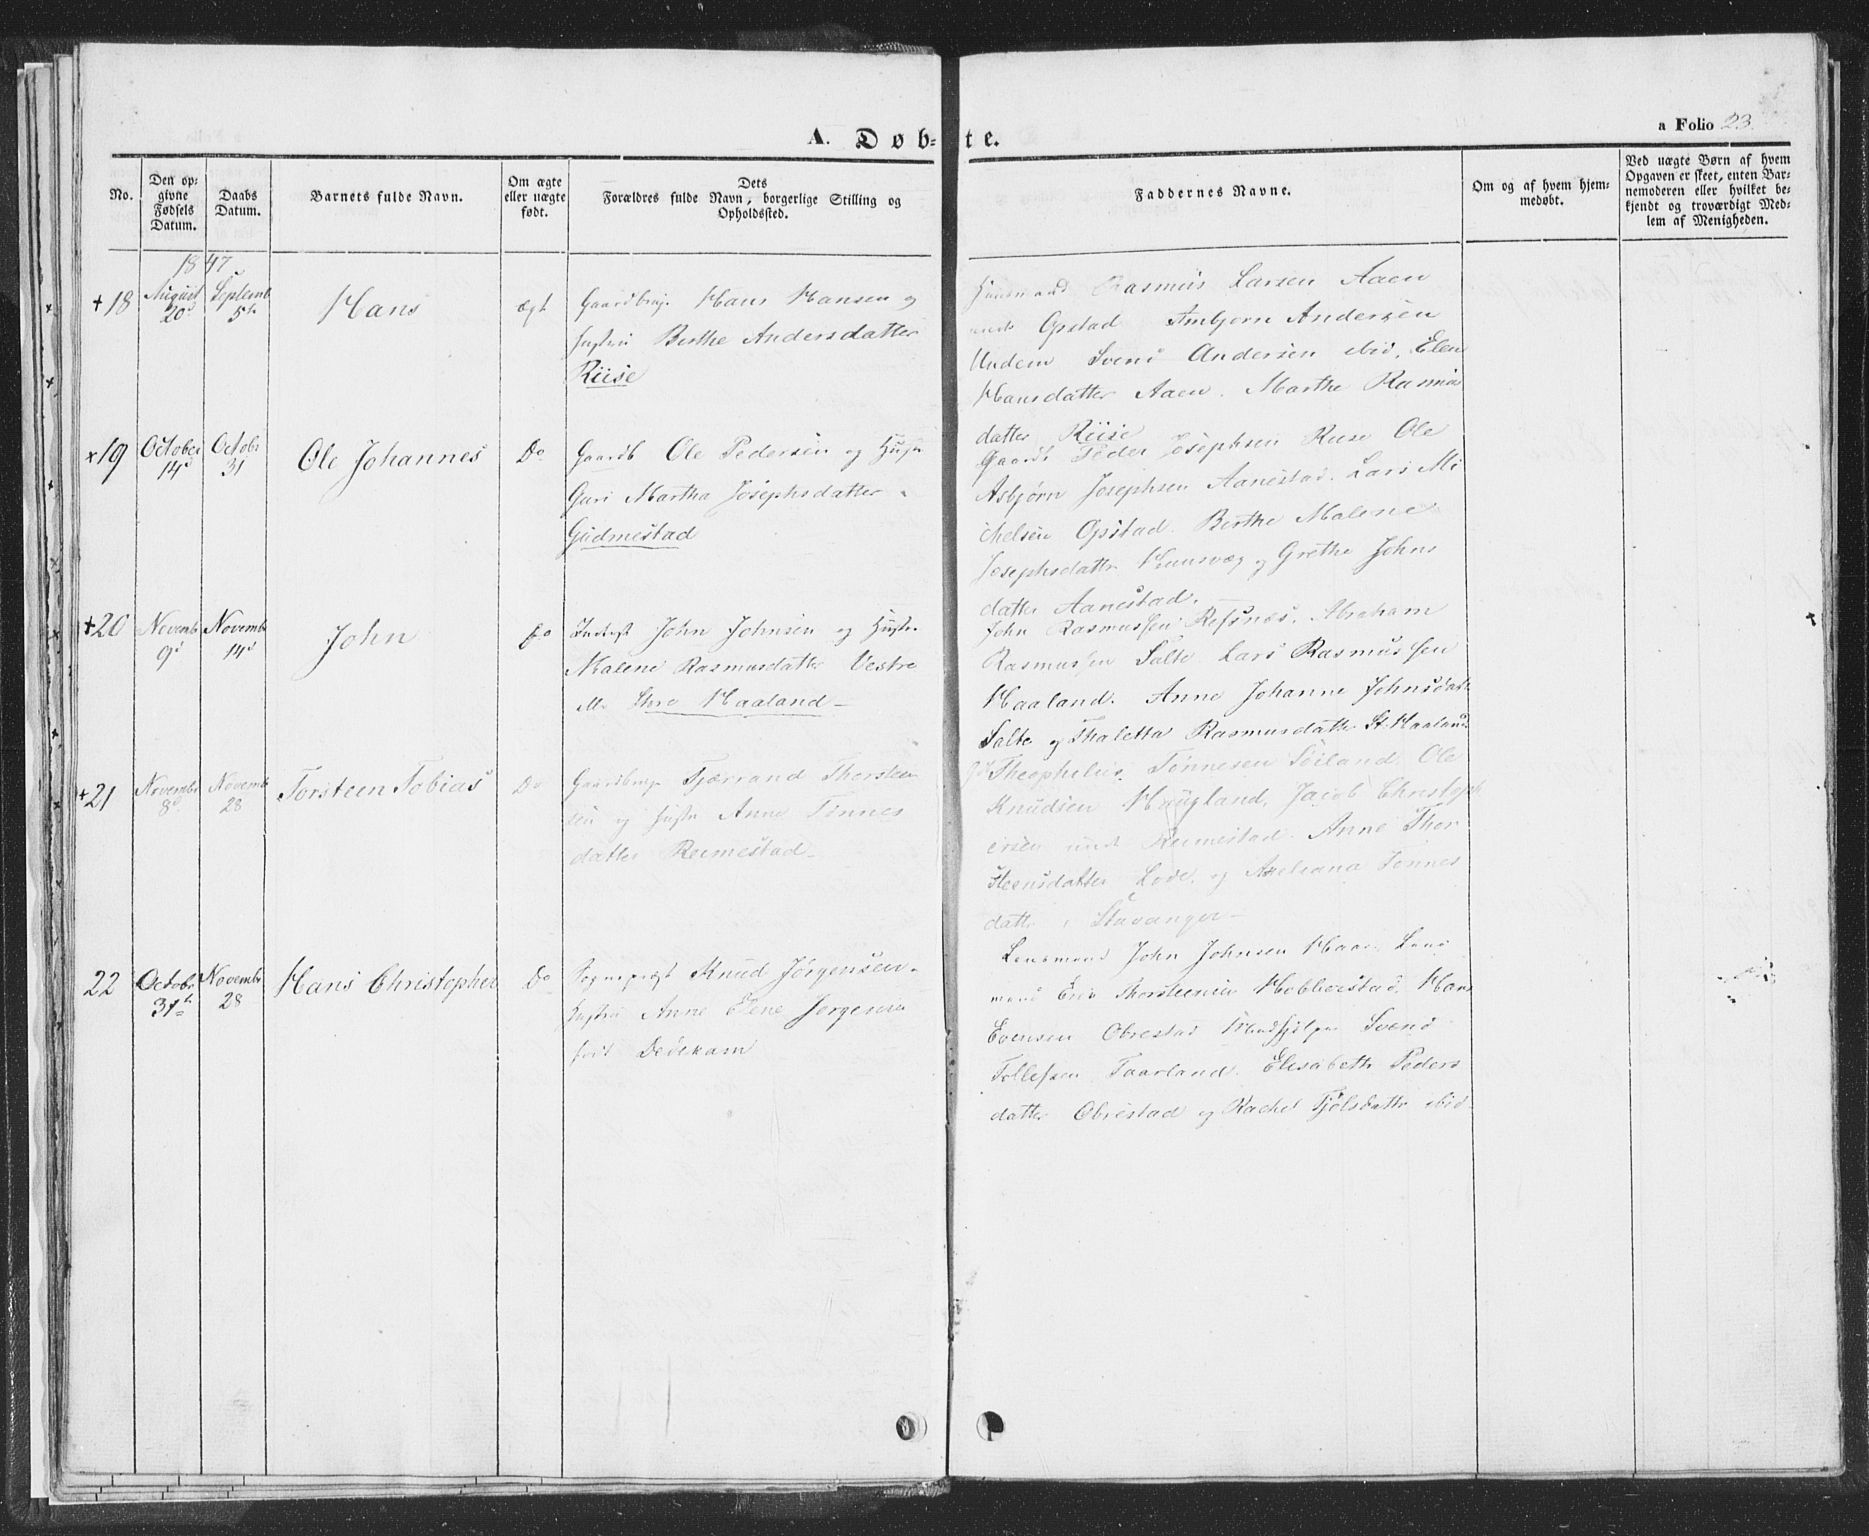 A. Døb-te.
a Folio 23.
No.
Den op-
givne
Fødsels
Datum.
Daabs
Datum.
Barnets fulde Navn.
Om ægte
eller uægte
født.
Dets
Forældres fulde Navn, borgerlige Stilling og
Opholdssted.
Faddernes Navne.
Om og af hvem hjem-
medøbt.
Ved uægte Børn af hvem
Opgaven er skeet, enten Bar-
nemoderen eller hvilket be-
kjendt og troværdigt Med-
lem af Menigheden.
1847
+18
August
20d
Septemb
5te
Hans
ægt
Gaardbrug. Hans Hansen og
Hustru Berthe Andersdatter
Riise
Huusmand Rasmus Larsen Aaen
Opstad Ambjorn Andersen
Undem Svend Andersen ibid. Elen
Hansdatter Aaen. Marthe Rasmus
datter Riise
×19
October
14d
Octobr
31
Ole Johannes
Do
Gaardb Ole Pedersen og Hustr
Guri Martha Josephsdatter
Gudmestad
Gaardb Peder Josephsen Ruse Ole
Asbjørn Josephsen Aanestad. Lars Mi
chelsen Opstad. Berthe Malene
Josephsdattr og Grethe Johns
datter Aanestad.
+20
Novembr
9d
Novembr
14d
John
Do
John Johnsen og Hustr.
Malene Rasmusdatter Vestre
Store Haaland
John Rasmussen Refsnæs. Abraham
Rasmussen Salte Lars Rasmussen
Haaland. Anne Johanne Johnsdatt
Salte og Thaletta Rasmusdatter St. Haaland
+21
Novembr
8d
Novembr
28
Torsteen Tobias
Do
Gaardbrug Tjærrand Thorsteen
sen og Hustr Anne Tønnes
datter Reimestad
Theophilus Tønnesen Søiland. Ole
Knudsen Haugland, Jacob Christoph
ersen Reimestad. Anne Thor
steensdatter Lode. og Axeliana Tønnes
datter i Stavanger
22
Octobr
31te
Novembr
28
Hans Christopher
Do
Sognepræst Knud Jørgensen
Hustru Anne Elene Jørgensen
født Dedekam
Lensmand John Johnsen Haar. Lens
mand Eric Thorsteensen Hobberstad. Hans
Evensen Obrestad Medhjelper Svend
Tollefsen Taarland. Elisabeth Peders
datter Obrestad og Rachel Tjølsdattr ibid